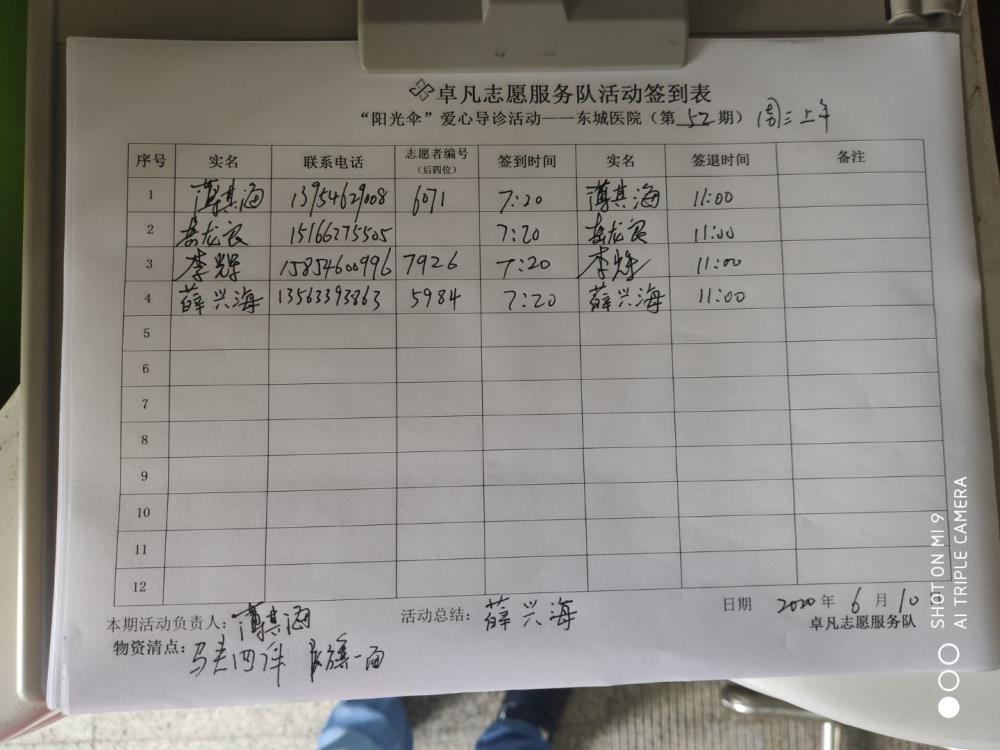 卓凡志愿服务队活动签到表
“阳光伞”爱心导诊活动——东城医院（第 52 期） 周三上午
序号 实名 联系电话 志愿者编号（后四位） 签到时间 实名 签退时间 备注
1 薄其海 13954629008 6071 7:20 薄其海 11:00
2 岳龙良 15166275505 7:20 岳龙良 11:00
3 李辉 15854600996 7926 7:20 李辉 11:00
4 薛兴海 13563393863 5984 7:20 薛兴海 11:00
5
6
7
8
9
10
11
12
本期活动负责人：薄其海 活动总结：薛兴海 日期 2020 年 6 月 10
卓凡志愿服务队
物资清点：马夹四件 队旗一面
SHOT ON MI 9
AI TRIPLE CAMERA